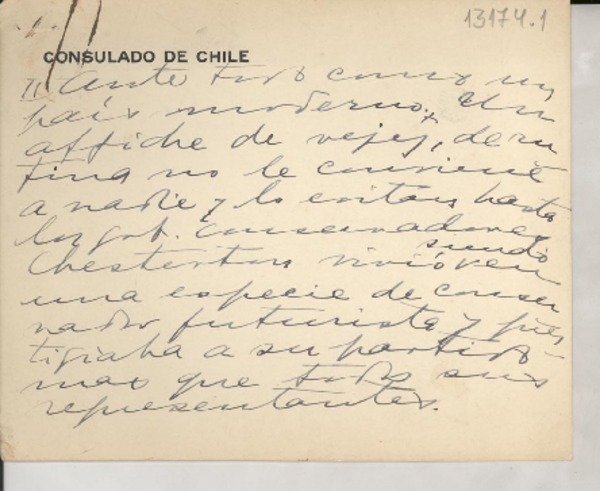 13174.1
CONSULADO DE CHILE
ante todo como un
país moderno. Un
affiche de vejez, de ru
tina no le conviene
a nadie y lo evitan hasta
los gob. conservadores
siendo
Chesterton vivió en
una especie de conser
vador futurista y pres
tigiaba a su partido
mas que todos sus
representantes.